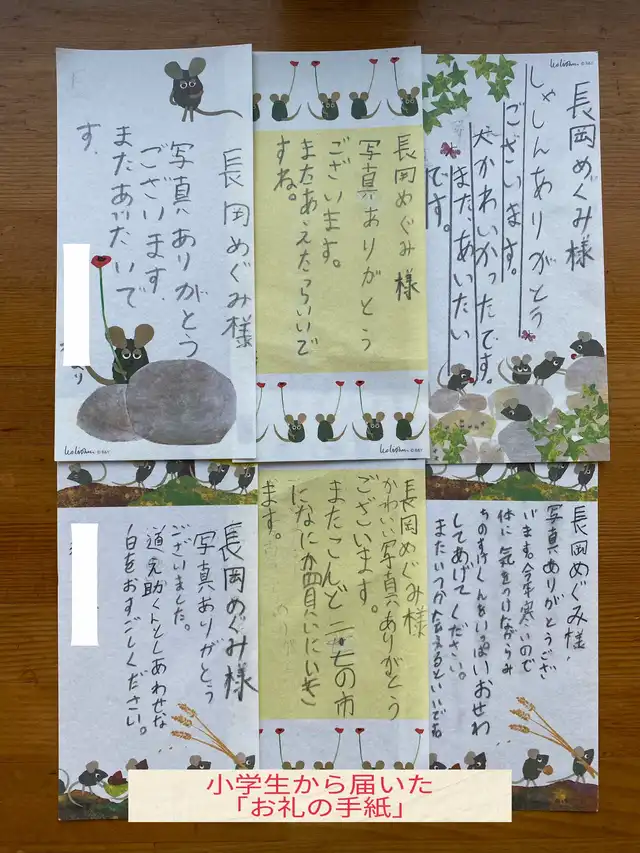 長岡めぐみ様
写真ありがとう
ございます.
またあいたいで
す.
Kolisan © K&Y
長岡めぐみ様
写真ありがとう
ございます。
またあえたらいいで
すね。
Kolisan © K&Y
長岡めぐみ様
しゃしんありがとう
ございます。
犬かわいかったです。
またあいたい
です。
長岡めぐみ様
写真ありがとう
ございました。
道之助くんとしあわせな
日をおすごしください。
長岡めぐみ様
かわいい写真ありがとう
ございます。
またこんど二・七の市
になにか買いにいき
ます。
長岡めぐみ様.
写真ありがとうござ
います。今年寒いので
体に気をつけながらみ
ちのすけくんをいっぱいおせわ
してあげてください。
またいつかあえるといいですね
小学生から届いた
「お礼の手紙」